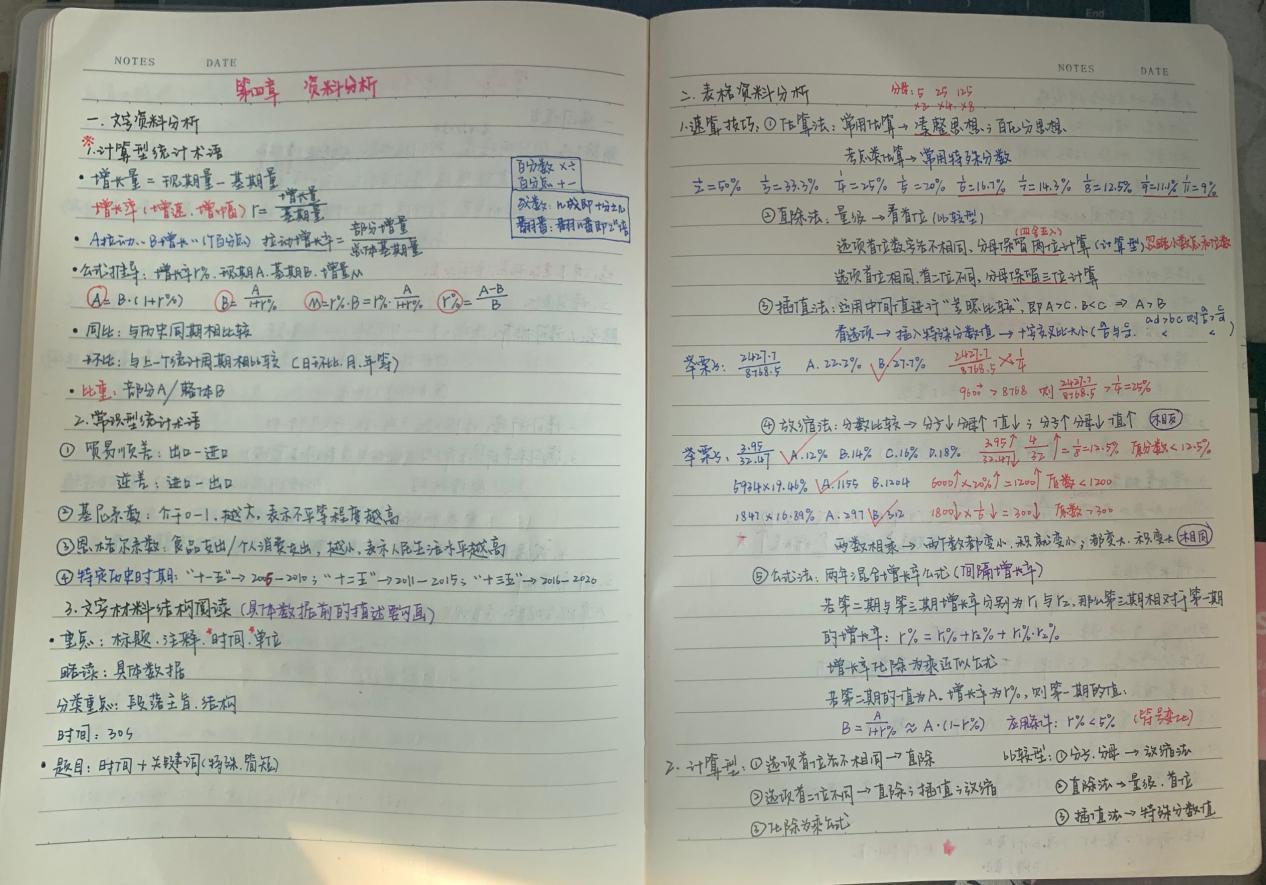 NOTES DATE
第四章 资料分析
一. 文字资料分析
※1.计算型统计术语
• 增长量 = 现期量 - 基期量
百分数 ×÷
百分点 +-
成数: 几成即十分之几
翻番: 翻n番即2ⁿ倍
增长率(增速、增幅) r=增长量/基期量
• A拉动..B增长..(百分点) 拉动增长率=部分增量/总体基期量
• 公式推导: 增长率r%.现期A.基期B.增量M
A=B·(1+r%) B=A/1+r% M=r%·B=r%·A/1+r% r%=A-B/B
• 同比: 与历史同期相比较
环比: 与上一个统计周期相比较 (日环比.月.年等)
• 比重: 部分A/整体B
2.常识型统计术语
① 贸易顺差: 出口-进口
逆差: 进口-出口
② 基尼系数: 介于0-1, 越大, 表示不平等程度越高
③ 恩格尔系数: 食品支出/个人消费支出, 越小, 表示人民生活水平越高
④ 特定历史时期: “十一五”→2006-2010; “十二五”→2011-2015; “十三五”→2016-2020
3.文字材料结构阅读 (具体数据前的描述要画)
• 重点: 标题.注释.*时间.*单位
略读: 具体数据
分类重点: 段落主旨.结构
时间: 30s
• 题目: 时间+关键词(特殊.简短)
NOTES DATE
二. 表格资料分析
分母: 5 25 125
×2 ×4 ×8
1.速算技巧. ①估算法: 常用估算→凑整思想; 百分思想.
考点类估算→常用特殊分数
1/2=50% 1/3=33.3% 1/4=25% 1/5=20% 1/6=16.7% 1/7=14.3% 1/8=12.5% 1/9=11.1% 1/11=9%
②直除法: 量级→看首位(比较型)
(四舍五入)
选项首位数字若不相同, 分母保留两位计算(计算型) 忽略小数点和位数
选项首位相同, 首二位不同, 分母保留三位计算
③插值法: 运用中间值进行“参照比较”, 即A>C. B<C ⇒ A>B
看选项→插入特殊分数值→十字交叉比大小(a/b与c/d. ad>bc 则a/b>c/d < < )
举栗子: 2427.7/8768.5 A.22.2% B.27.7% 2427.7/8768.5 1/4
9600⁺ > 8768 则 2427.7/8768.5 > 1/4=25%
④放缩法: 分数比较→分子↓分母↑值↓; 分子↑分母↓值↑ 相反
举栗子: 3.95/32.47 A.12% B.14% C.16% D.18% 3.95↑/32.47↓ 4/32↑=1/8=12.5% 原分数<12.5%
5934×19.46% A.1155 B.1204 6000↑×20%↑=1200↑ 原数<1200
1847×16.89% A.297 B.312 1800↓×1/6↓=300↓ 原数>300
两数相乘→两个数都变小.积就变小; 都变大.积变大 相同
⑤公式法: 两年混合增长率公式(间隔增长率)
若第二期与第三期增长率分别为r₁与r₂, 那么第三期相对于第一期
的增长率: r%=r₁%+r₂%+r₁%·r₂%
增长率化除为乘近似公式
若第二期的值为A. 增长率为r%, 则第一期的值.
B=A/1+r% ≈ A·(1-r%) 应用条件: r%<5% (符号变化)
2.计算型: ①选项首位若不相同→直除 比较型: ①分子.分母→放缩法
②选项首二位不同→直除; 插值; 放缩 ②直除法→量级.首位
③化除为乘公式 ③插值法→特殊分数值